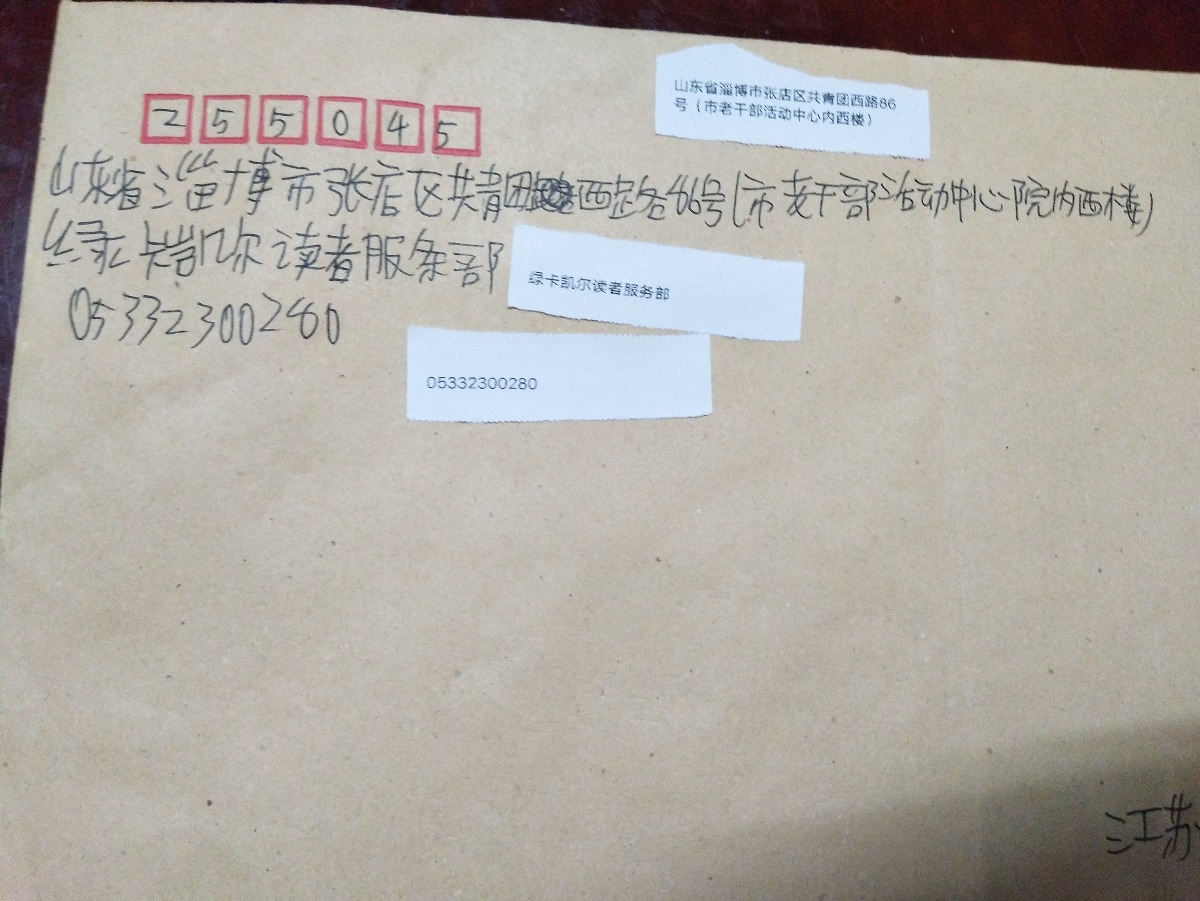 山东省淄博市张店区共青团西路86
号（市老干部活动中心内西楼）
255045
山东省淄博市张店区共青团西路86号(市老干部活动中心院内西楼)
绿卡凯尔读者服务部
绿卡凯尔读者服务部
05332300280
05332300280
江苏